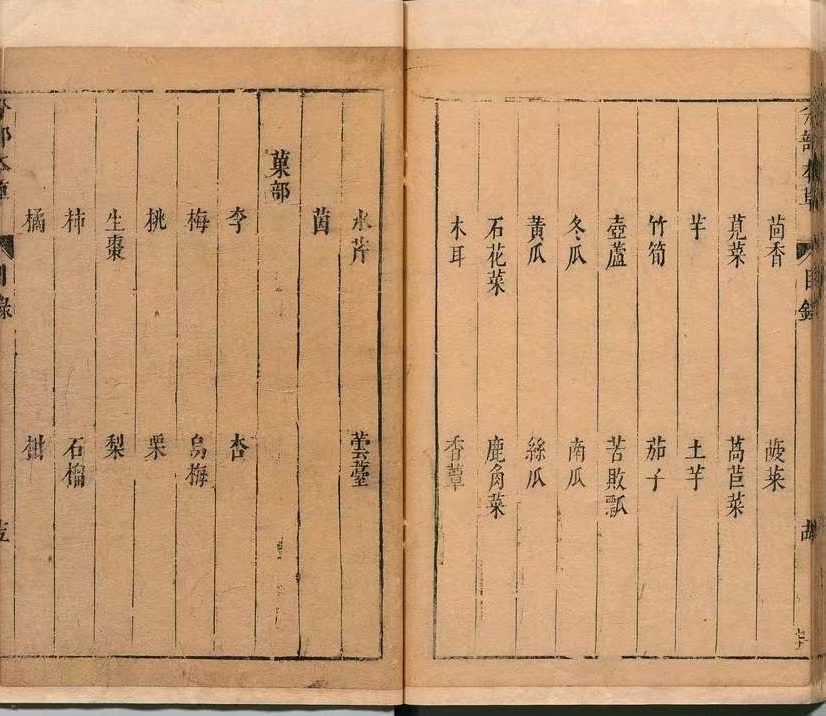 茴香 菠菜
莧菜 萵苣菜
芋 土芋
竹筍 茄子
壺蘆 苦敗瓢
冬瓜 南瓜
黃瓜 絲瓜
石花菜 鹿角菜
木耳 香蕈
水芹 蕓薹
茵
菓部
李 杏
梅 烏梅
桃 栗
生棗 梨
柿 石榴
橘 柑
目錄